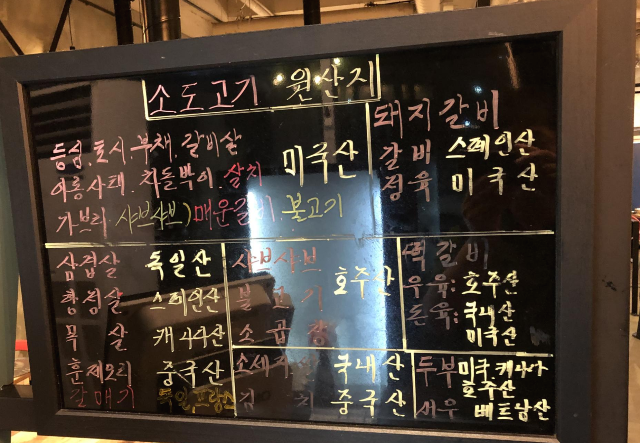 소도고기 원산지
등심.호시.부채.갈비살
아롱사태.차돌박이.살치 미국산
가브리 샤브샤브) 매운갈비 불고기
돼지갈비
갈비 스페인산
정육 미국산
삼겹살 독일산
항정살 스페인산
목살 캐나다산
훈제오리 중국산
갈매기 독일.프랑스
샤브샤브
불고기 호주산
소곱창
떡갈비
우육: 호주산
돈육: 국내산
미국산
소세지 국내산
김치 중국산
두부 미국.캐나다
호주산
새우 베트남산